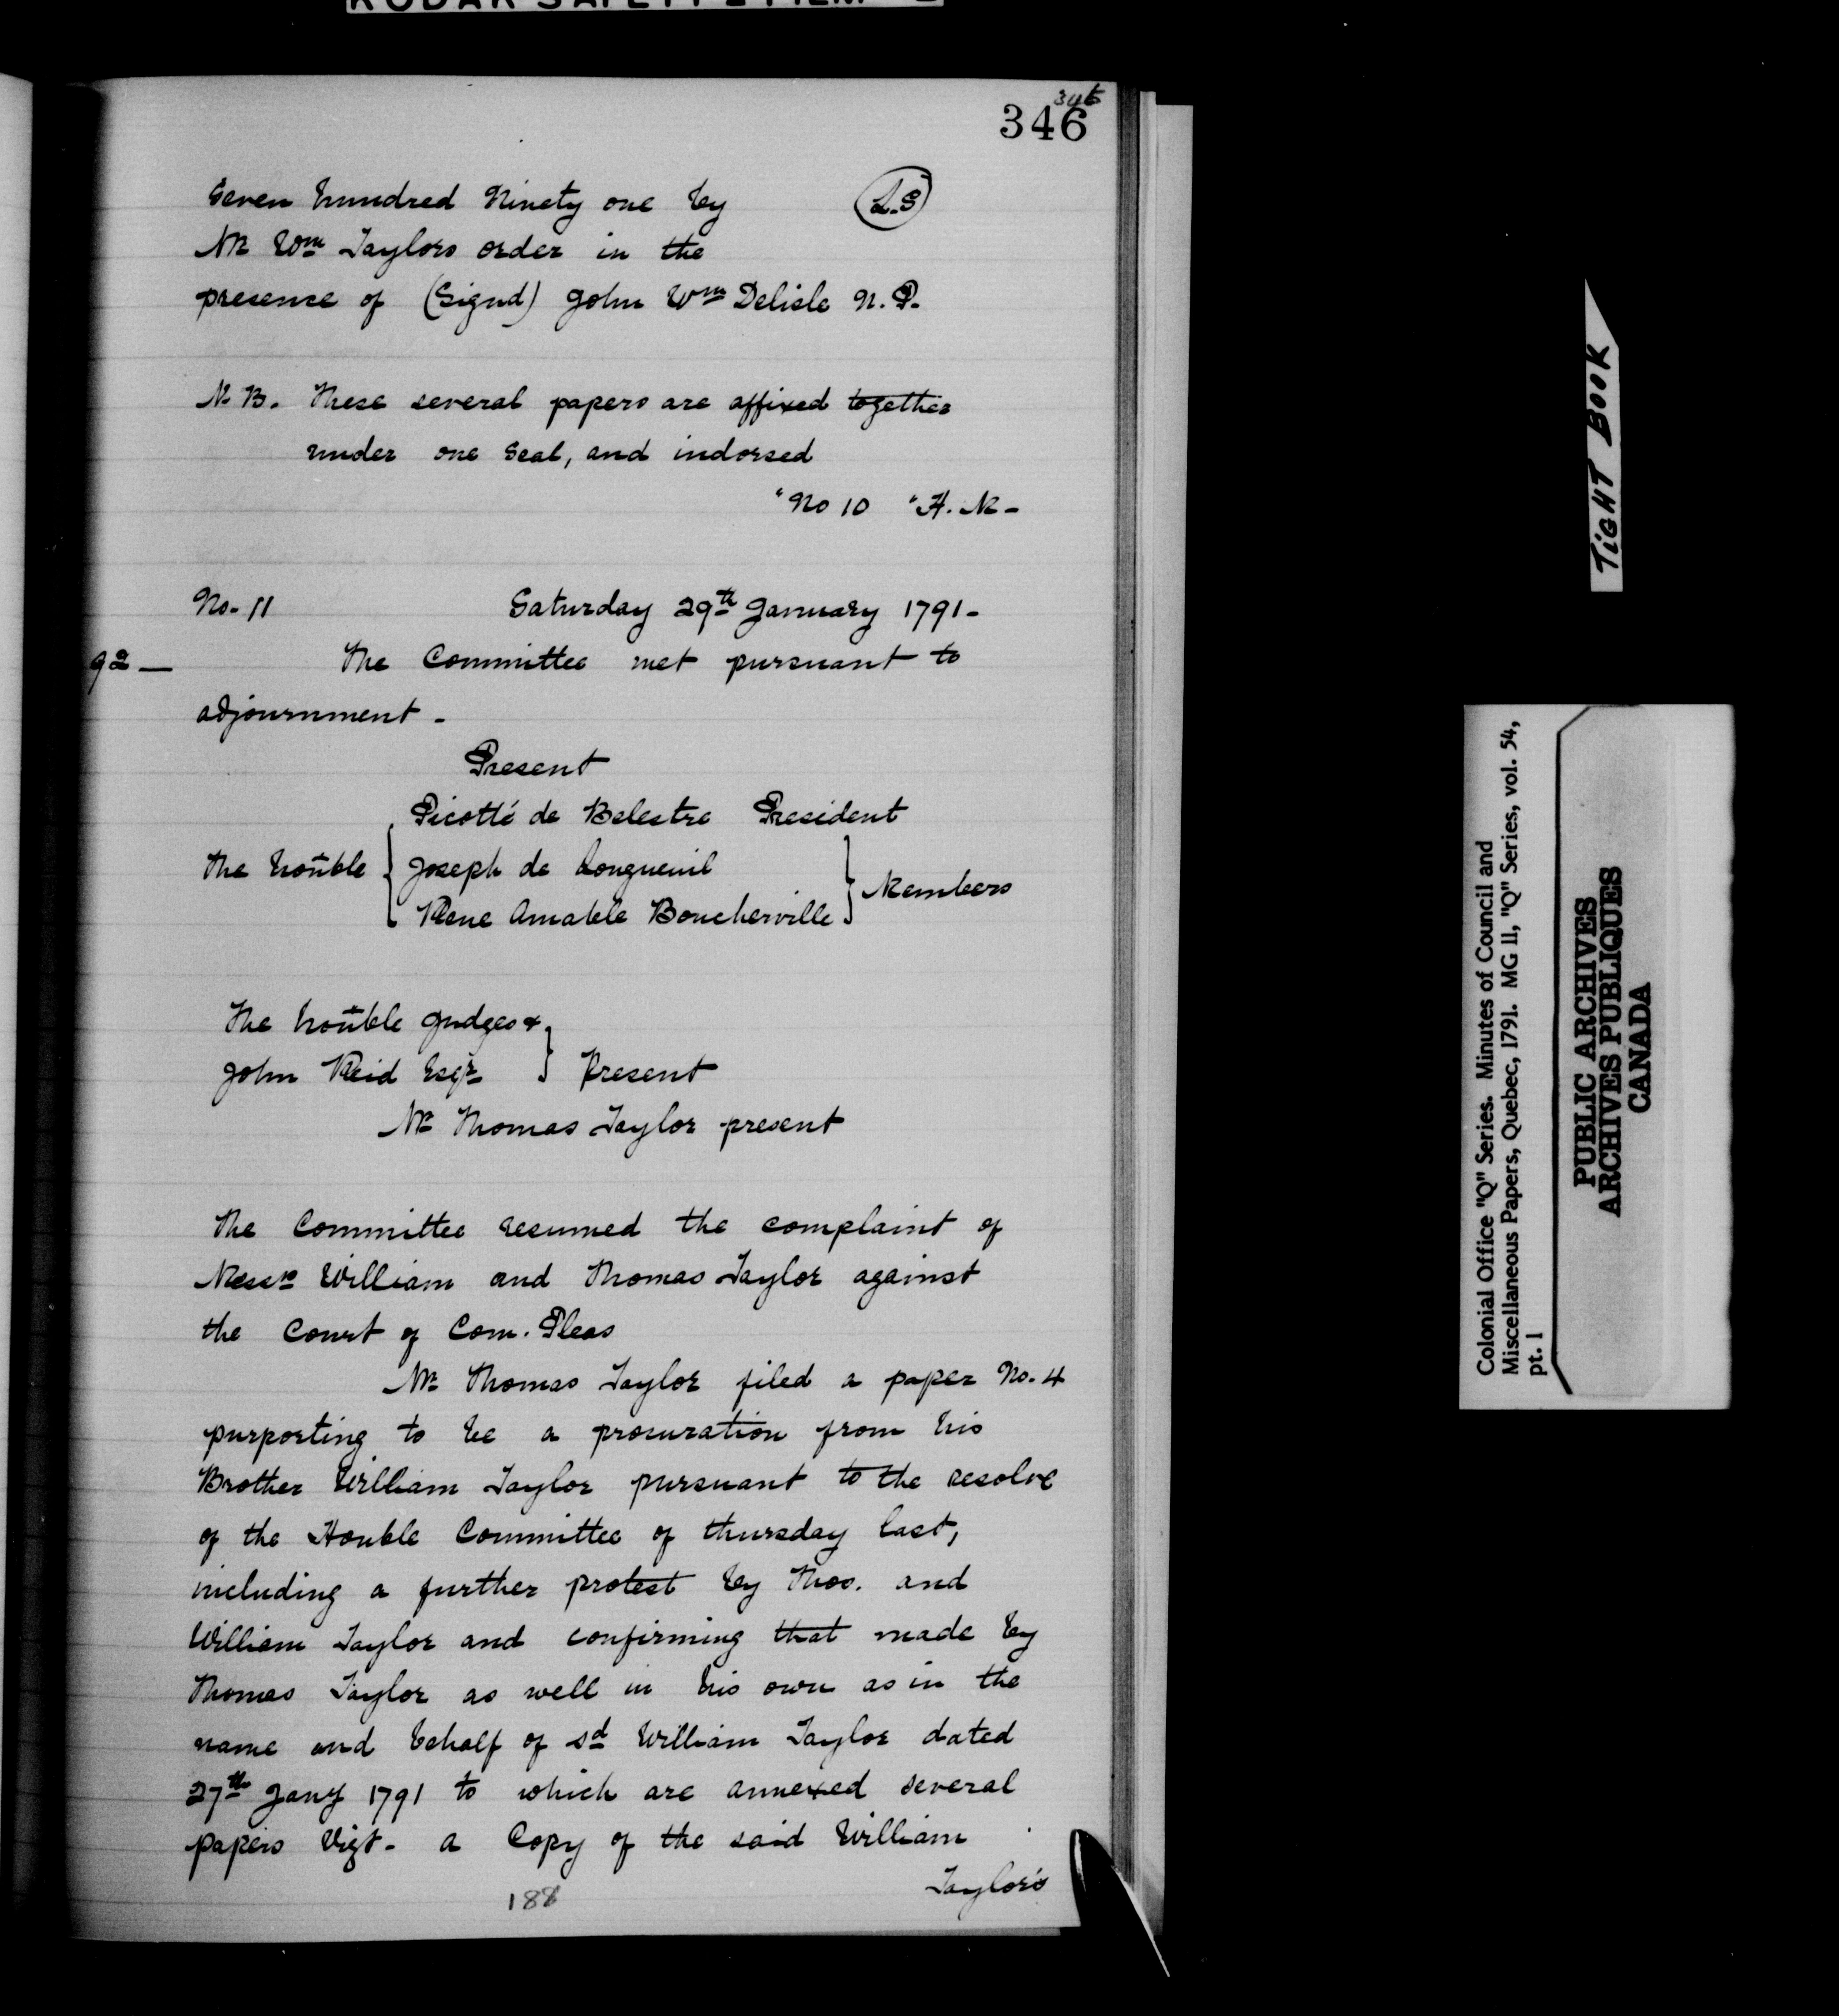 346
346
Seven hundred Ninety one by
L.S
Mr Wm Taylors order in the
presence of (Signd) John Wm Delisle N. P.
N. B. These several papers are affixed together
under one Seal, and indorsed
"No 10 "H. M-
No. 11 Saturday 29th January 1791-
92 — The Committee met pursuant to
adjournment -
Present
Picotté de Belestre President
The honble { Joseph de Longueuil
Rene Amable Boucherville } Members
The honble Judges &
John Reid Esqr } Present
Mr Thomas Taylor present
The Committee resumed the complaint of
Messrs William and Thomas Taylor against
the Court of Com. Pleas
Mr Thomas Taylor filed a paper No. 4
purporting to be a procuration from his
Brother William Taylor pursuant to the resolve
of the Honble Committee of thursday last,
including a further protest by Thos. and
William Taylor and confirming that made by
Thomas Taylor as well in his own as in the
name and behalf of sd William Taylor dated
27th Jany 1791 to which are annexed several
papers Vizt- a Copy of the said William
Taylor's
188
TIGHT BOOK
Colonial Office "Q" Series. Minutes of Council and
Miscellaneous Papers, Quebec, 1791. MG 11, "Q" Series, vol. 54,
pt. 1
PUBLIC ARCHIVES
ARCHIVES PUBLIQUES
CANADA